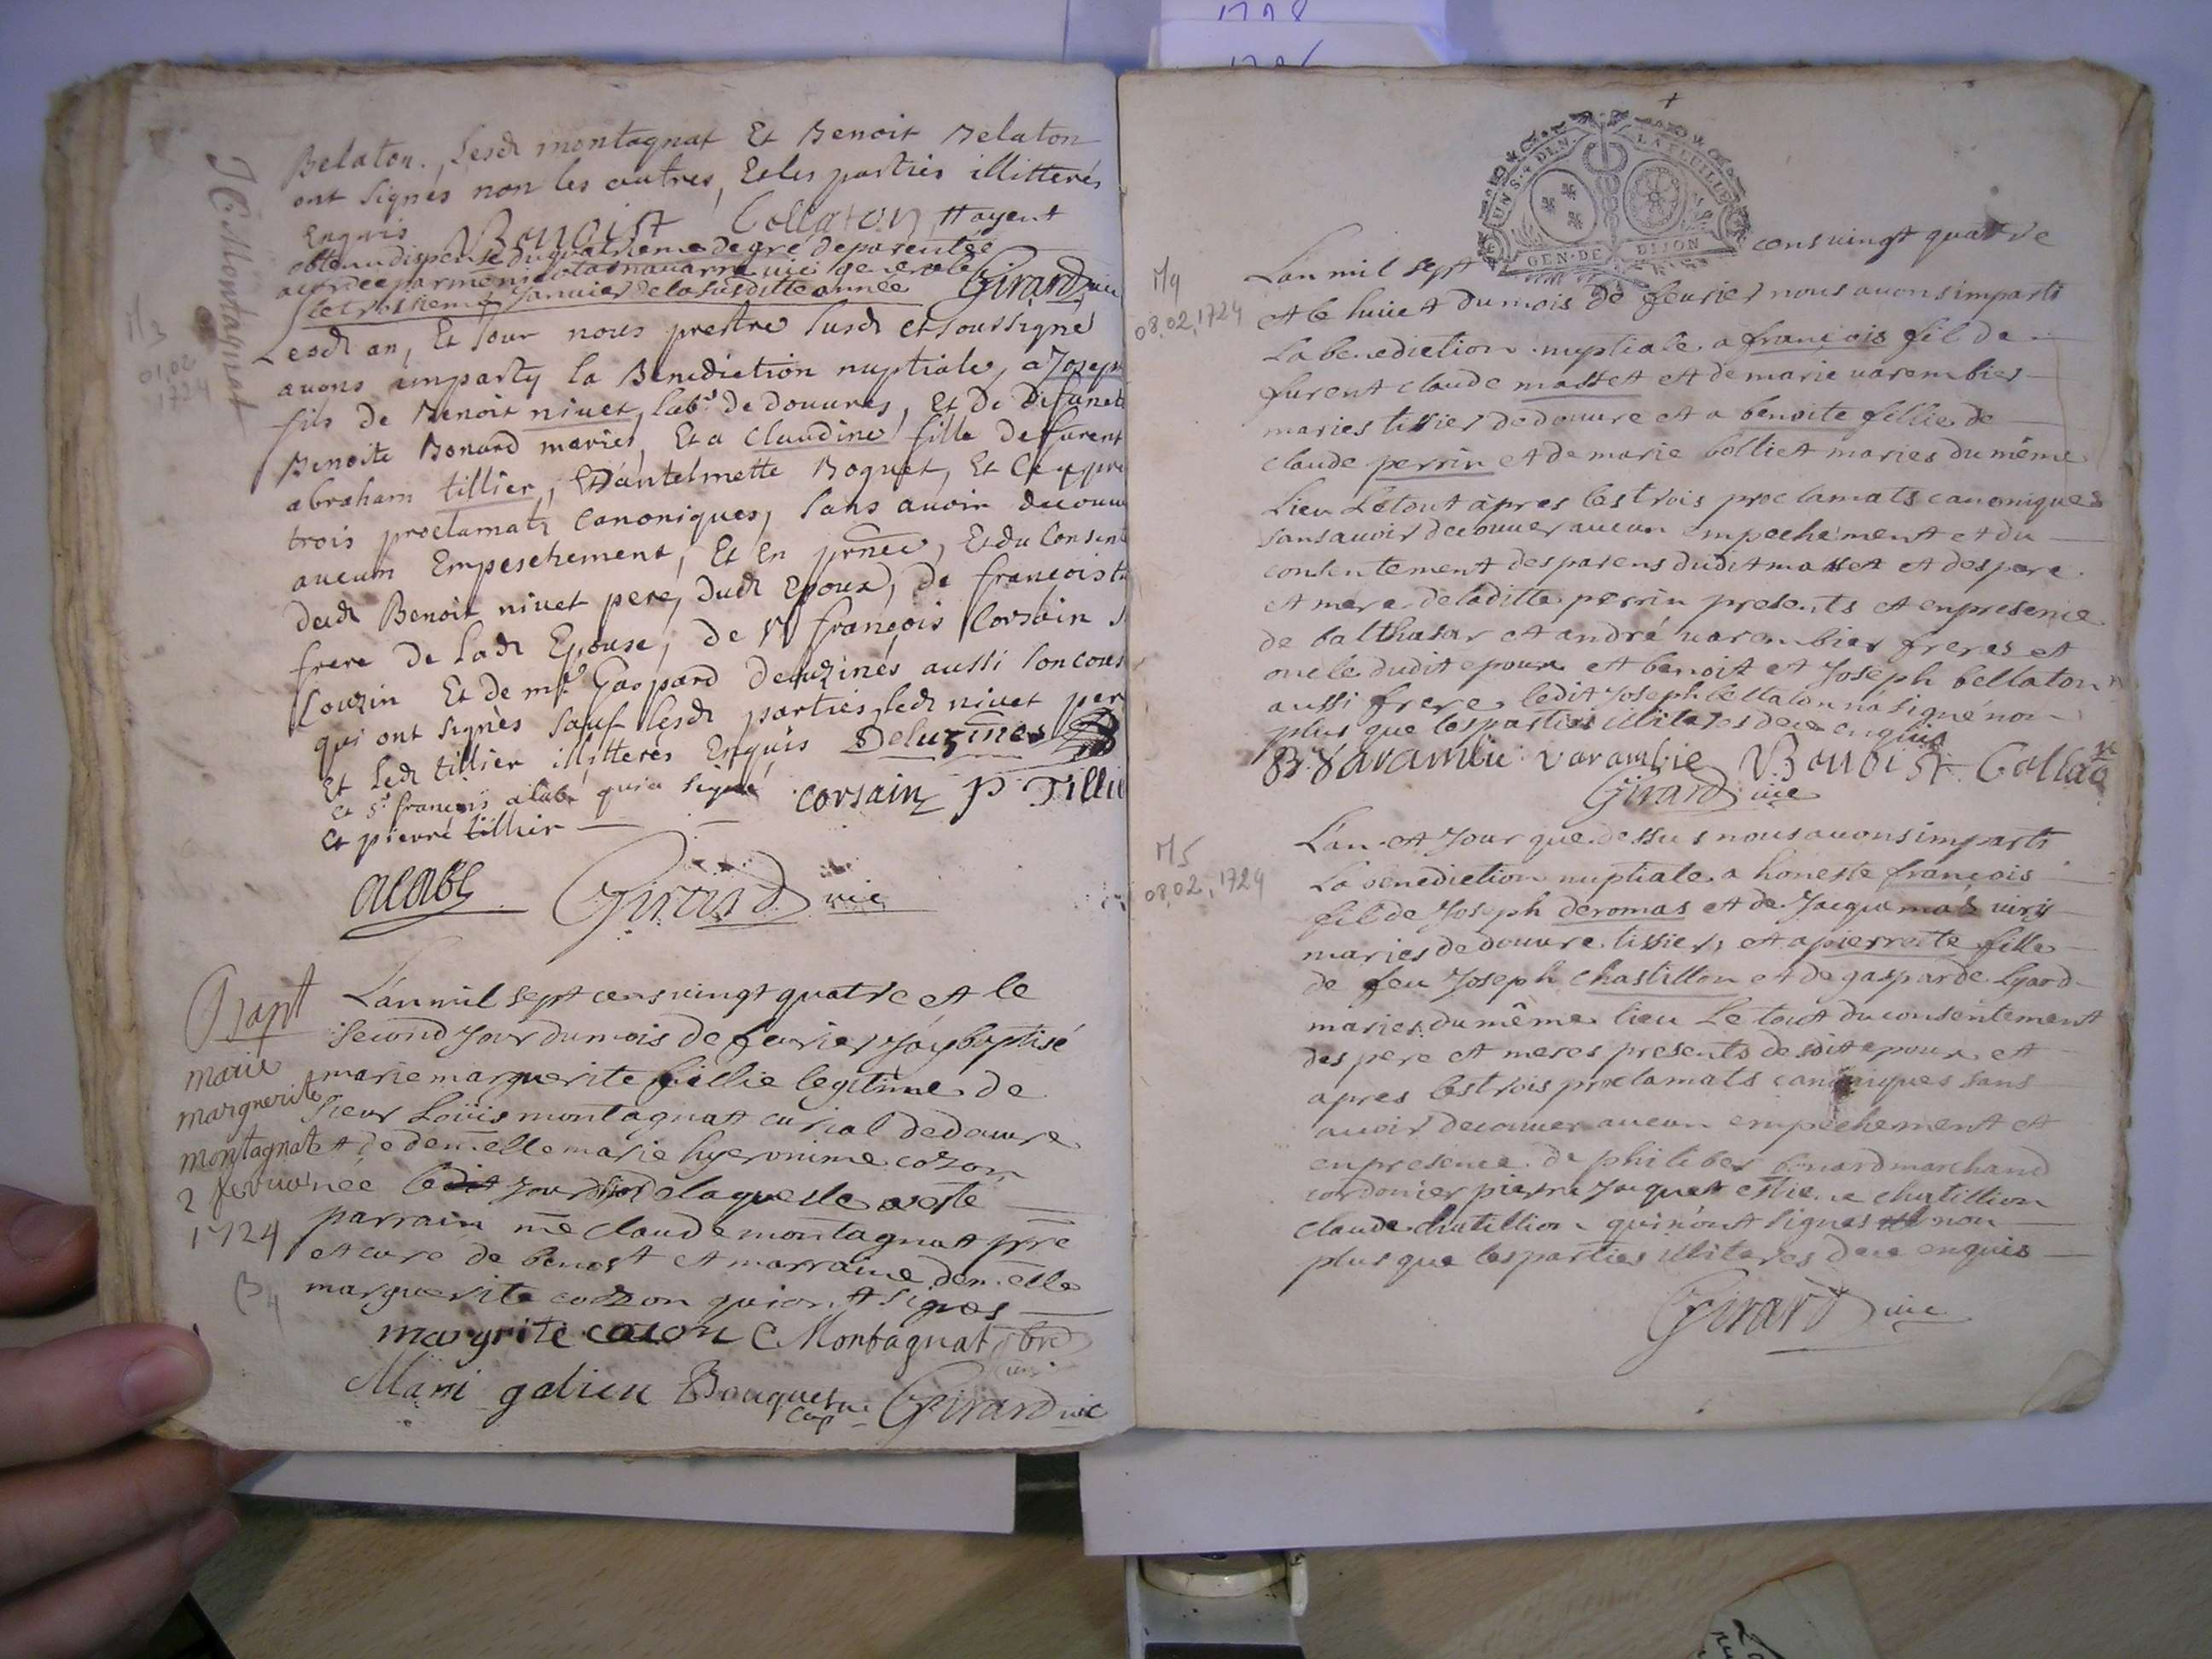 Belaton. Lesd montagnat Et Benoit Belaton
ont signés non les autres, Et les parties illitterés
Enquis Benoist Collaton Hayent
obtenu dispense du quatrieme degré de parentée
accordée par
le troisieme janvier de la susditte année Girard vic
Lesd an, Et Jour nous prestre susd et soussigné
auons imparty la Benediction nuptiale, a Joseph
fils de Benoit niuet, lab.r de douures, Et de Defuncte
Benoite Bonard mariés, Et a Claudine fille De furent
abraham tillier, Et D'antelmette Boquet, Et
trois proclamats Canoniques, sans auoir
aucum Empeschement, Et En pñce, Et du
dud Benoit niuet pere, dud Epoux, de françois
frere De Lad Epouse, de Sr françois Corsain
Couzin Et de mre Gaspard Deluzinés aussi son
qui ont signès sauf lesd parties, led niuet per
Et Led tillier illitterès Enquis Deluzines
et Sr françois alabe qui a signé corsain P Tillie
Et pierre tillier
alabe Girard vic
J C Montagnat
M3
01,02
1724
Bapt
marie
marguerite
montagnat
2 fevrier
1724
B4
L'an mil sept cens vingt quatre et le
second Jour du mois de fevrier J'ay baptisé
marie marguerite fillie legitime de
sieur Loüis montagnat curial de douvre
et de dem.elle marie hyeronime cozon
née ledit jour de laquelle a esté
parrain me Claude montagnat pre
et cure de benost et marraine dem.elle
marguerite cozon qui ont signes
margrite cozon C Montagnat pbre
curé
Mani galien Bouquet
cap Girard vic
1708
GEN. DE DIJON
M4
08,02,1724
L'an mil sept cens vingt quatre
et le huict du mois de feurier nous auons imparti
La benediction nuptiale a françois fil de
furent claude masset et de marie varembier
maries tissier de douure et a benoite fillie de
claude perrin et de marie bolliet maries du même
lieu Le tout àpres les trois proclamats canoniques
sans auoir decouuer aucun empechement et du
consentement des parens dudit masset et des pere
et mere de laditte perrin presents et en presence
de balthasar et andré varembier freres et
oncle dudit epoux et benoit et Joseph bellaton
aussi frere ledit Joseph bellaton n'a signé non
plus que les parties illiteres deue enquis
B. Varambie varambie Benoist Collaton
Girard vic
M5
08,02,1724
L'an et Jour que dessus nous auons imparti
La benediction nuptiale a honeste françois
fil de Joseph deromas et de Jacquema
maries de douure tissier, et a pierrette fille
de feu Joseph chastillon et de gasparde Lyard
maries du même lieu Le tout du consentement
des pere et meres presents desdit epoux et
apres les trois proclamats canoniques sans
auoir decouuer aucun empechement et
en presence de philiber bonard marchand
cordonier pierre Jacquet estiene chatillion
claude chatillion qui n'ont signes non
plus que les parties illiteres deue enquis
Girard vic